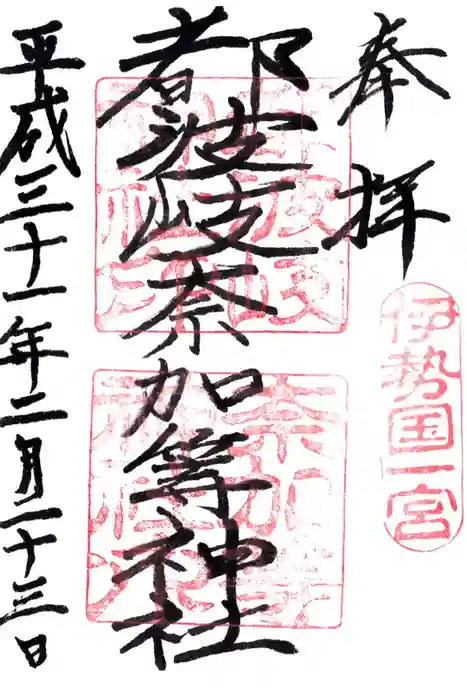 奉拝
伊勢国一宮
都波岐奈加等神社
平成三十一年二月二十三日